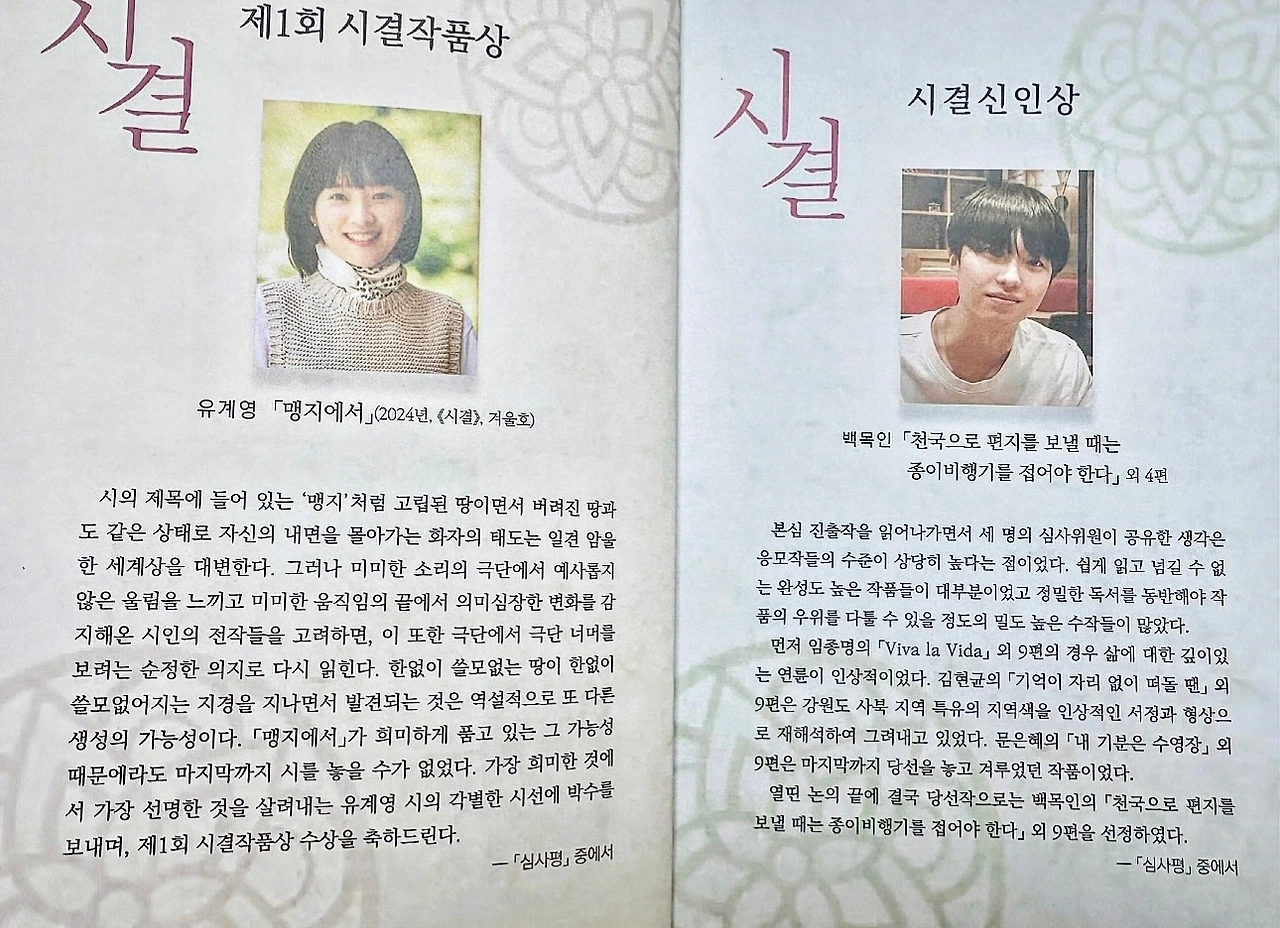 시결
제1회 시결작품상
유계영 「맹지에서」(2024년, 《시결》, 겨울호)
시의 제목에 들어 있는 ‘맹지’처럼 고립된 땅이면서 버려진 땅과
도 같은 상태로 자신의 내면을 몰아가는 화자의 태도는 일견 암울
한 세계상을 대변한다. 그러나 미미한 소리의 극단에서 예사롭지
않은 울림을 느끼고 미미한 움직임의 끝에서 의미심장한 변화를 감
지해온 시인의 전작들을 고려하면, 이 또한 극단에서 극단 너머를
보려는 순정한 의지로 다시 읽힌다. 한없이 쓸모없는 땅이 한없이
쓸모없어지는 지경을 지나면서 발견되는 것은 역설적으로 또 다른
생성의 가능성이다. 「맹지에서」가 희미하게 품고 있는 그 가능성
때문에라도 마지막까지 시를 놓을 수가 없었다. 가장 희미한 것에
서 가장 선명한 것을 살려내는 유계영 시의 각별한 시선에 박수를
보내며, 제1회 시결작품상 수상을 축하드린다.
─「심사평」 중에서
시결
시결신인상
백목인 「천국으로 편지를 보낼 때는
종이비행기를 접어야 한다」 외 4편
본심 진출작을 읽어나가면서 세 명의 심사위원이 공유한 생각은
응모작들의 수준이 상당히 높다는 점이었다. 쉽게 읽고 넘길 수 없
는 완성도 높은 작품들이 대부분이었고 정밀한 독서를 동반해야 작
품의 우위를 다툴 수 있을 정도의 밀도 높은 수작들이 많았다.
먼저 임종명의 「Viva la Vida」 외 9편의 경우 삶에 대한 깊이있
는 연륜이 인상적이었다. 김현균의 「기억이 자리 없이 떠돌 땐」 외
9편은 강원도 사북 지역 특유의 지역색을 인상적인 서정과 형상으
로 재해석하여 그려내고 있었다. 문은혜의 「내 기분은 수영장」 외
9편은 마지막까지 당선을 놓고 겨루었던 작품이었다.
열띤 논의 끝에 결국 당선작으로는 백목인의 「천국으로 편지를
보낼 때는 종이비행기를 접어야 한다」 외 9편을 선정하였다.
─「심사평」 중에서